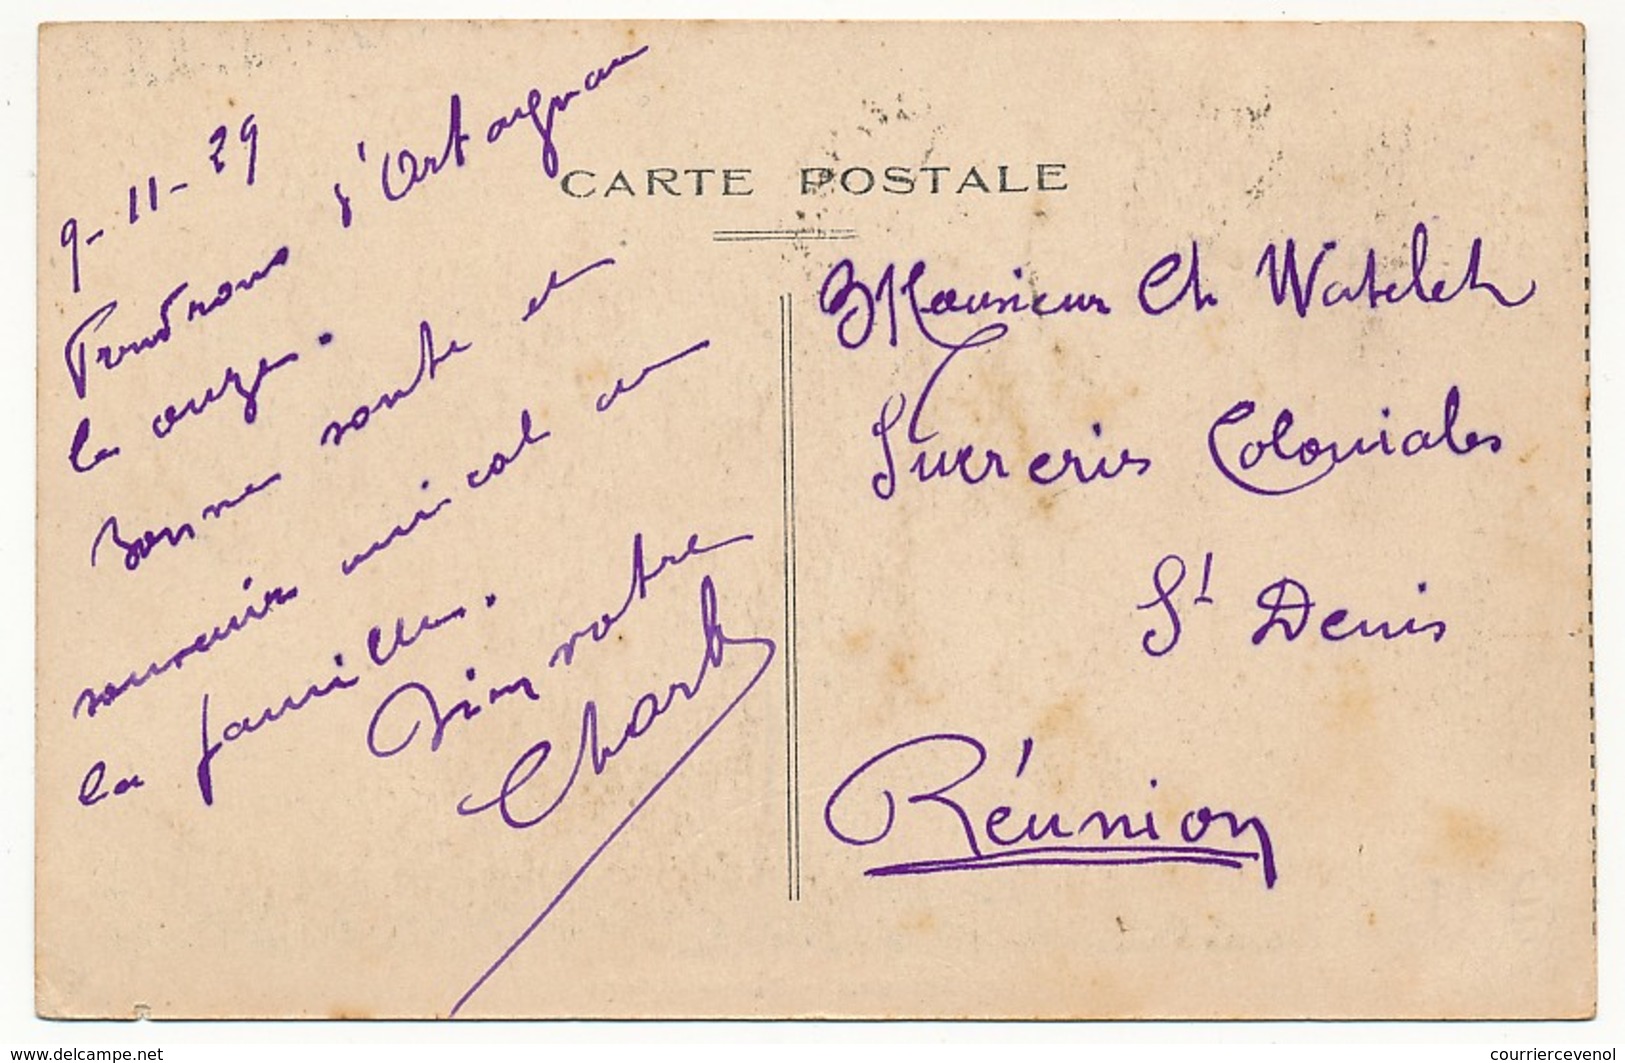 9-11-29
Prendrons d'Artagnan
le onze.
Bonne sante et
souvenir amical au
la famille.
Bien votre
Charly
CARTE POSTALE
Monsieur Ch Watelet
Sucreries Coloniales
St Denis
Réunion
www.delcampe.net
courriercevenol